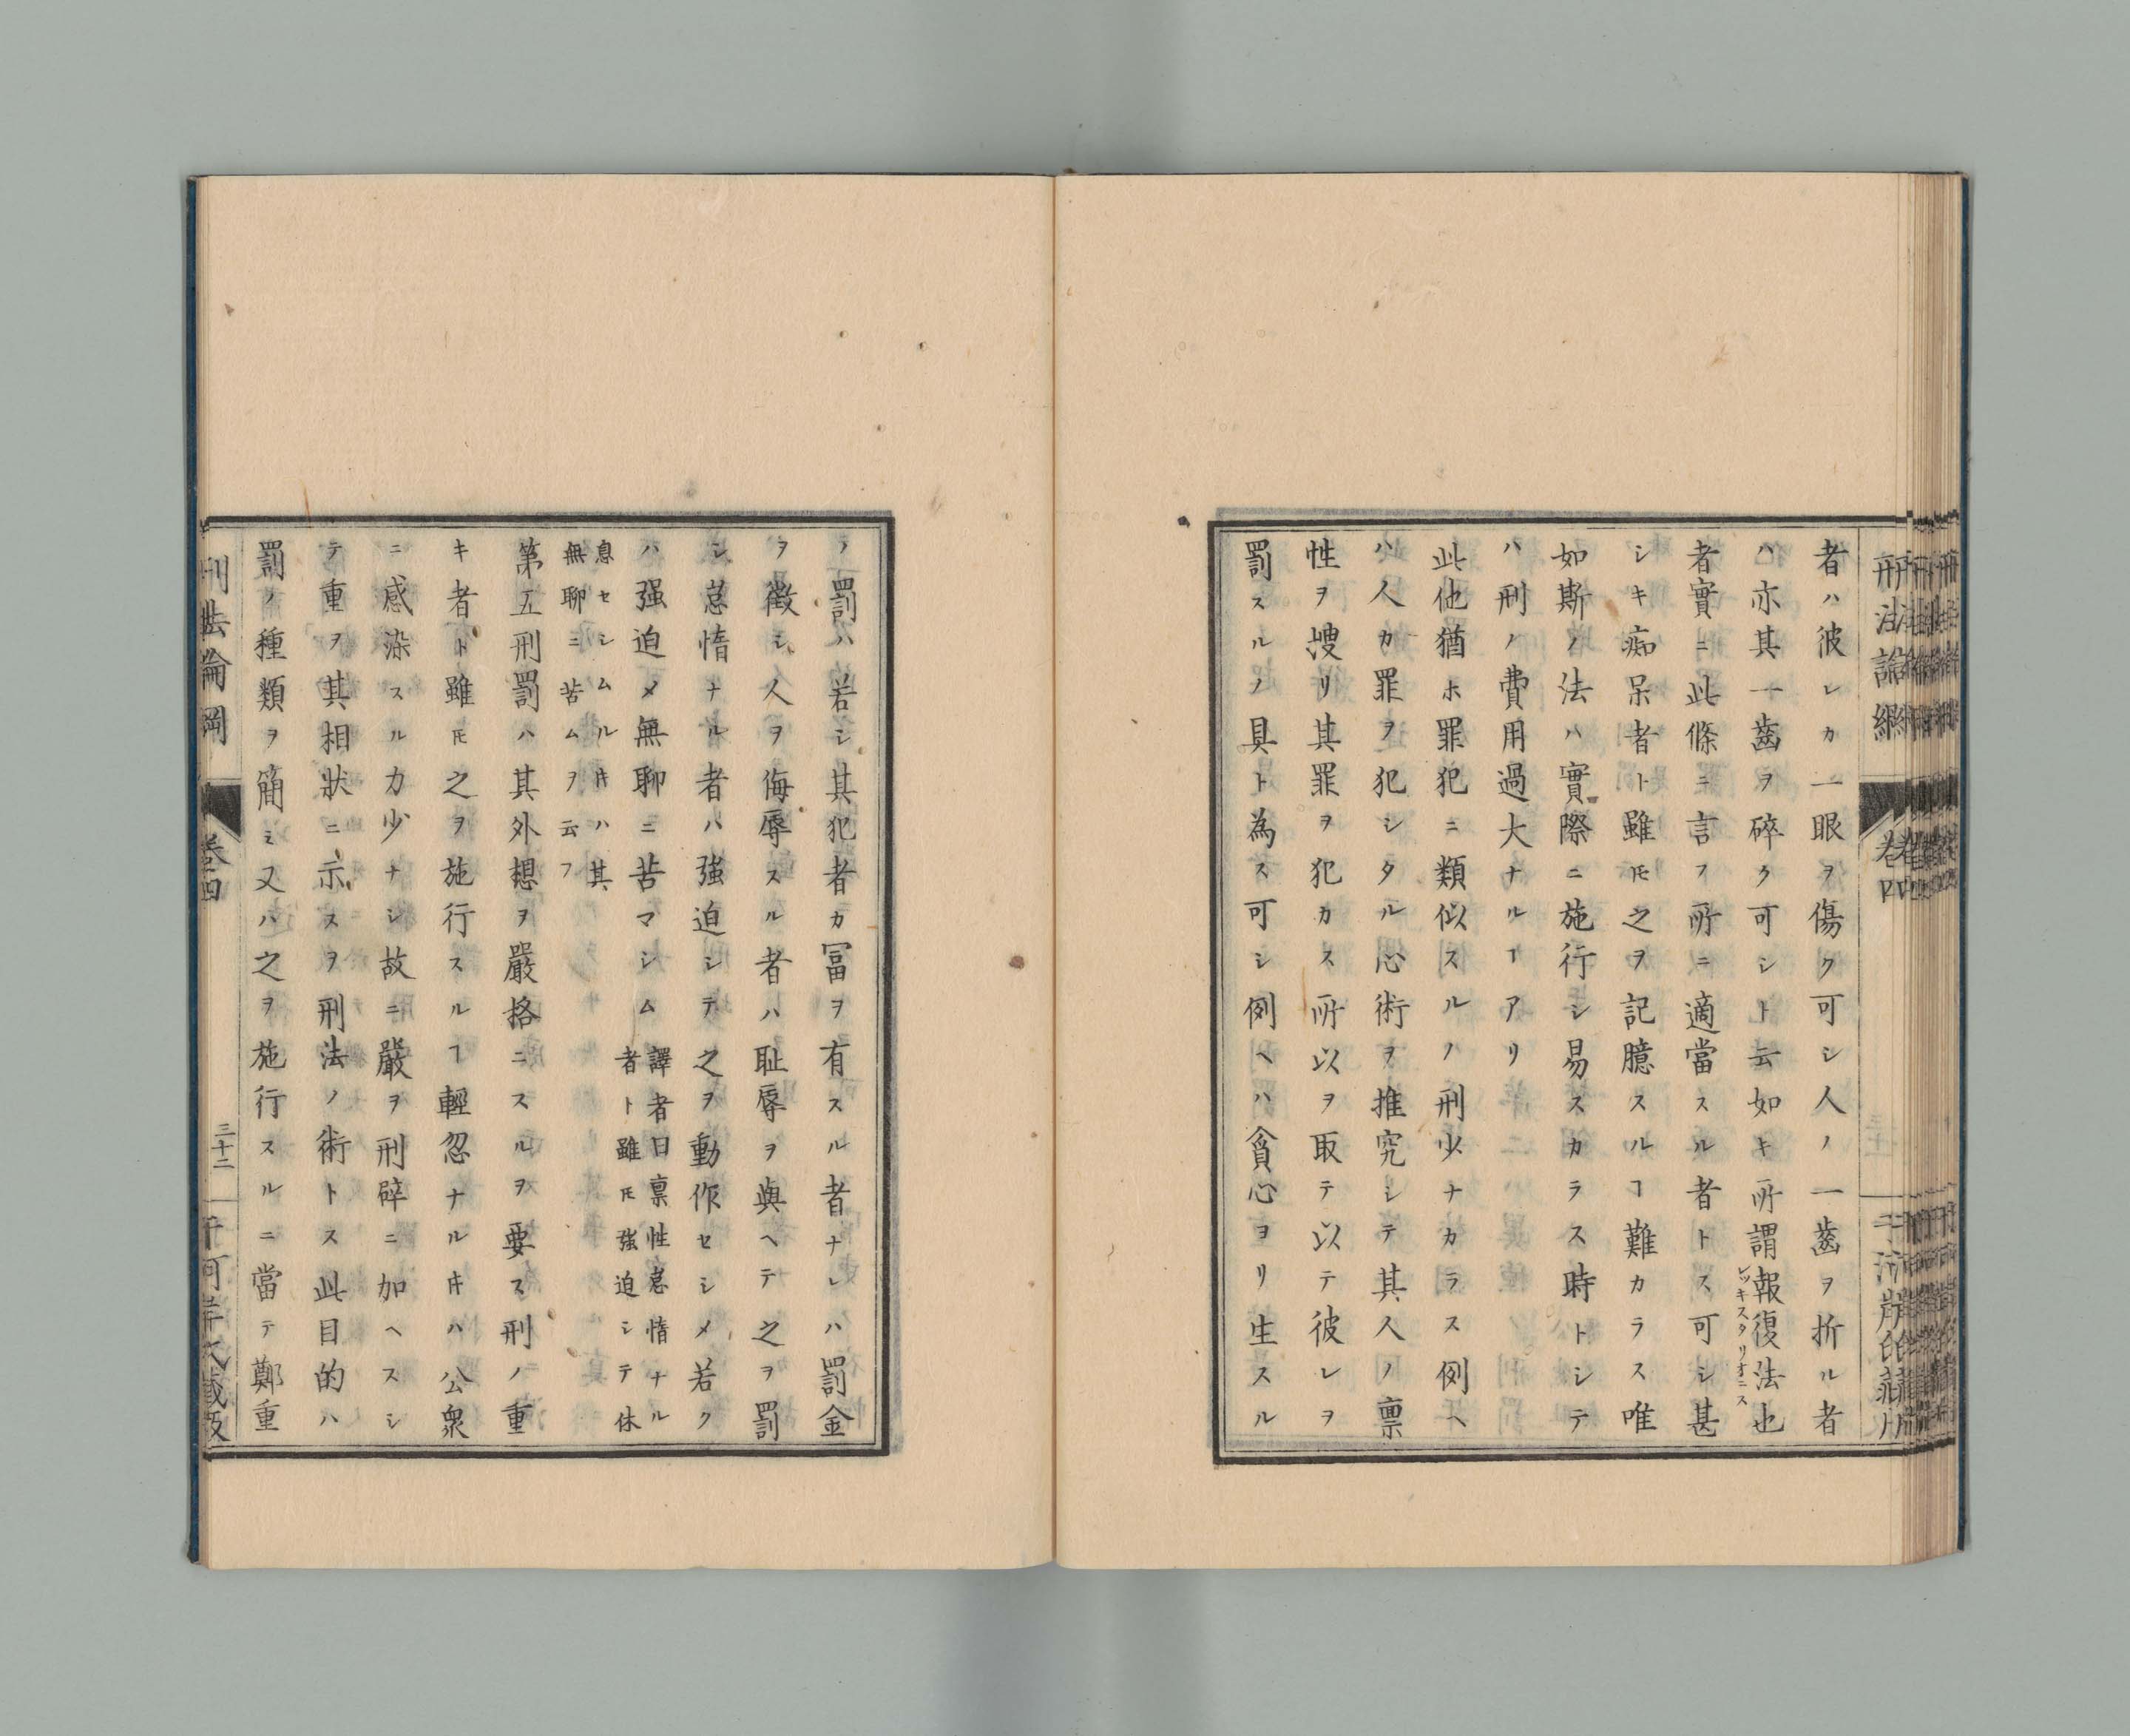 者ハ彼レカ一眼ヲ傷ク可シ人ノ一齒ヲ折ル者
ハ亦其一齒ヲ碎ク可シト云如キ所謂報復法也
レッキスタリオニス
者實ニ此條ニ言フ所ニ適當スル者トス可シ甚
シキ痴呆者ト雖𪜈之ヲ記臆スルヿ難カラス唯
如斯ノ法ハ實際ニ施行シ易スカラス時トシテ
ハ刑ノ費用過大ナルヿアリ
此他猶ホ罪犯ニ類似スルノ刑少ナカラス例ヘ
ハ人カ罪ヲ犯シタル心術ヲ推究シテ其人ノ禀
性ヲ捜リ其罪ヲ犯カス所以ヲ取テ以テ彼レヲ
罰スルノ具ト為ス可シ例ヘハ貪心ヨリ生スル
ノ罰ハ若シ其犯者カ冨ヲ有スル者ナレハ罰金
ヲ徴シ人ヲ侮辱スル者ハ耻辱ヲ與ヘテ之ヲ罰
シ怠惰ナル者ハ強迫シテ之ヲ動作セシメ若ク
ハ强迫メ無聊ニ苦マシム
譯者曰禀性怠惰ナル
者ト雖𪜈强迫シテ休
息セシムル𪜀ハ其
無聊ニ苦ムヲ云フ
第五刑罰ハ其外想ヲ嚴格ニスルヲ要ス刑ノ重
キ者ト雖𪜈之ヲ施行スルヿ輕忽ナル𪜀ハ公衆
ニ感染スル力少ナシ故ニ嚴ヲ刑辟ニ加ヘスシ
テ重ヲ其相狀ニ示スヲ刑法ノ術トス此目的ハ
罰ノ種類ヲ簡ミ又ハ之ヲ施行スルニ當テ鄭重
刑法論綱
卷四
三十二